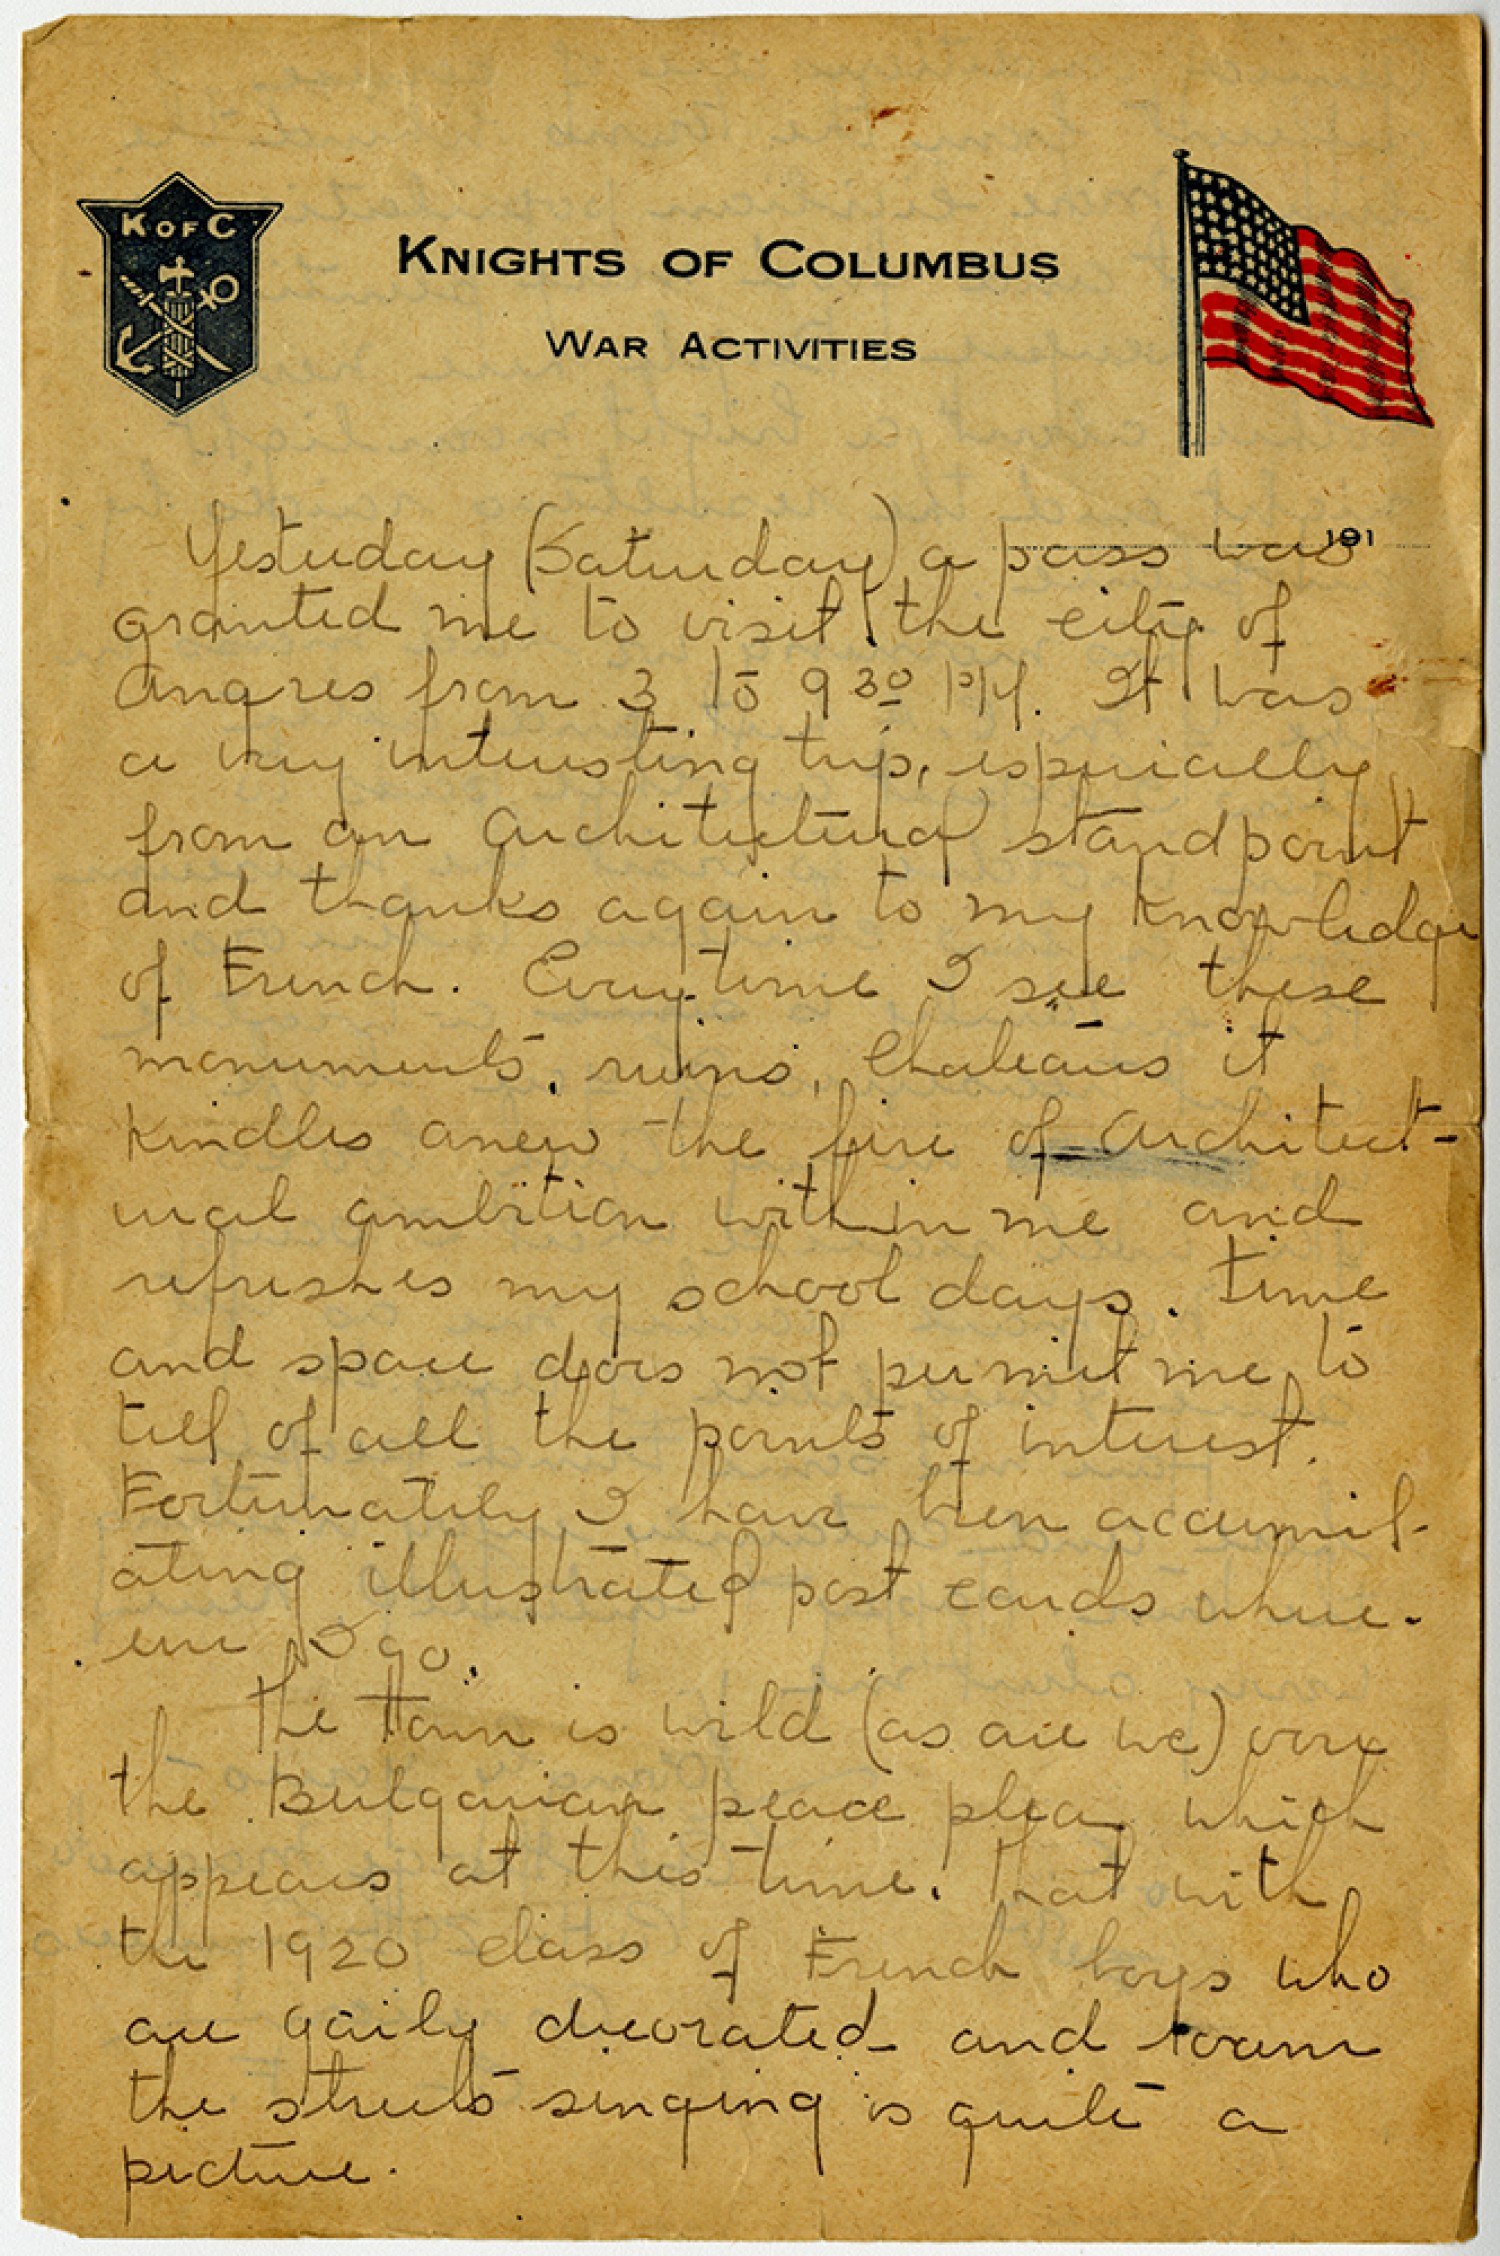 K OF C
KNIGHTS OF COLUMBUS
WAR ACTIVITIES
191
Yesterday (Saturday) a pass was
granted me to visit the city of
Angres from 3 to 9 30 PM. It was
a very interesting trip, especially
from an Architectural standpoint
and thanks again to my knowledge
of French. Everytime I see these
monuments, ruins, Chateaus it
kindles anew the fire of Architect-
ural ambition within me and
refreshes my school days. Time
and space does not permit me to
tell of all the points of interest.
Fortunately I have been accumul-
ating illustrated post cards where-
ever I go.
The town is wild (as are we) over
the Bulgarian peace plea which
appears at this time. That with
the 1920 class of French boys who
are gaily decorated and roam
the streets singing is quite a
picture.